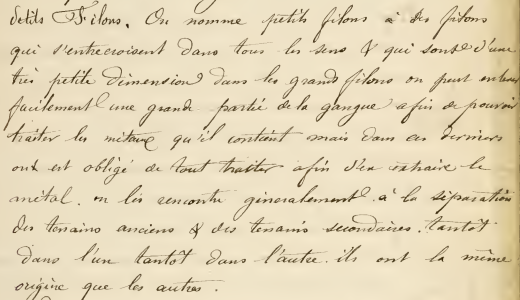 Petits Filons. On nomme petits filons à des filons
qui s'entrecroisent dans tous les sens & qui sont d'une
très petite dimension dans les grands filons on peut enlever
facilement une grande partie de la gangue afin de pouvoir
traiter les métaux qu'il contient mais dans ces derniers
ont est obligé de tout traiter afin d'en extraire le
métal. on les rencontre généralement à la séparation
des terrains anciens & des terrains secondaires. tantôt
dans l'un tantôt dans l'autre. ils ont la même
origine que les autres.